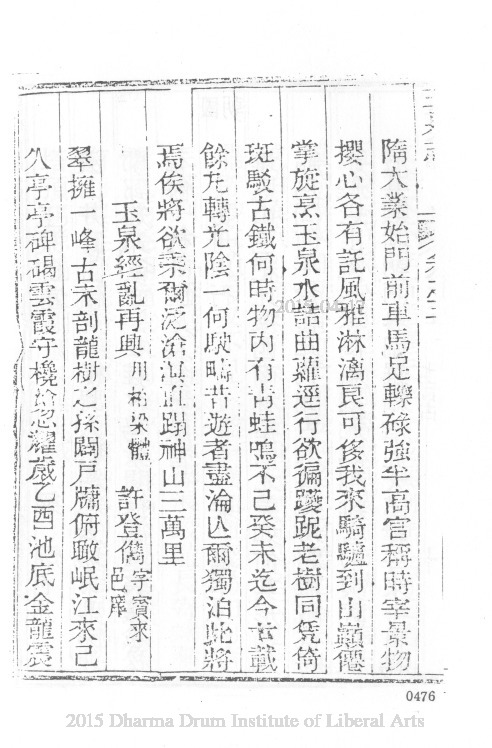 隋大業始門前車馬足轢碌強半高官稱時宰景物
攖心各有託風雅淋漓良可俢我來騎驢到山巔僊
掌旋烹玉泉水詰曲蘿逕行欲徧躨跜老樹同凭倚
斑駮古鐵何時物内有青蛙鳴不已癸未迄今廿載
餘尤轉光陰一何駛疇昔遊者盡淪亾爾獨泊此將
焉俟將欲乘爾泛滄溟直蹋神山三萬里
玉泉經亂再興 用柏梁體 許登儁 字賓來 邑庠
翠擁一峰古未剖龍樹之孫闢戸牖俯瞰岷江來已
久亭亭碑碣雲霞守欃槍忽耀歲乙酉池底金龍震
0476
2015 Dharma Drum Institute of Liberal Arts